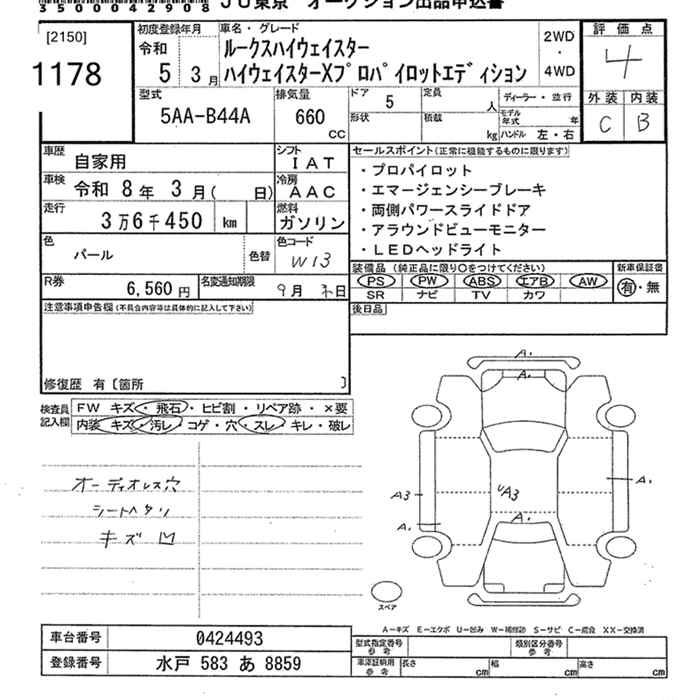 35000042908 JU東京 オークション出品申込書
[2150]
1178
初度登録年月
令和
5 3月
車名・グレード
ルークスハイウェイスター
ハイウェイスターXプロパイロットエディション
2WD
・
4WD
評価点
4
外装 内装
C B
型式
5AA-B44A
排気量
660
cc
ドア 5
形状
定員 人
積載 kg
ディーラー・並行
モデル年式 年
ハンドル 左・右
車歴
自家用
シフト
IAT
車検
令和 8年 3月( 日)
冷房
AAC
走行
3万6千450 km
燃料
ガソリン
色
パール
色替
色コード
W13
R券
6,560円
名変通知期限
9月 末日
セールスポイント(正常に機能するものに限ります)
・プロパイロット
・エマージェンシーブレーキ
・両側パワースライドドア
・アラウンドビューモニター
・LEDヘッドライト
装備品 (純正品に限り○をつけてください)
PS PW ABS エアB AW
SR ナビ TV カワ
新車保証書
有・無
後日品
注意事項申告欄(不具合内容等は具体的に記入して下さい)
修復歴 有〔箇所 〕
検査員記入欄
FW キズ・飛石・ヒビ割・リペア跡・×要
内装 キズ・汚レ・コゲ・穴・スレ・キレ・破レ
オーディオレス穴
シートヘタリ
キズ 凹
A1
A1
A3
A3
A1
A1
スペア
A-キズ E-エクボ U-凹み W-補修跡 S-サビ C-腐食 XX-交換済
車台番号 0424493
登録番号 水戸 583 あ 8859
型式指定番号 参考
類別区分番号 参考
車庫証明用 参考
長さ cm
幅 cm
高さ cm